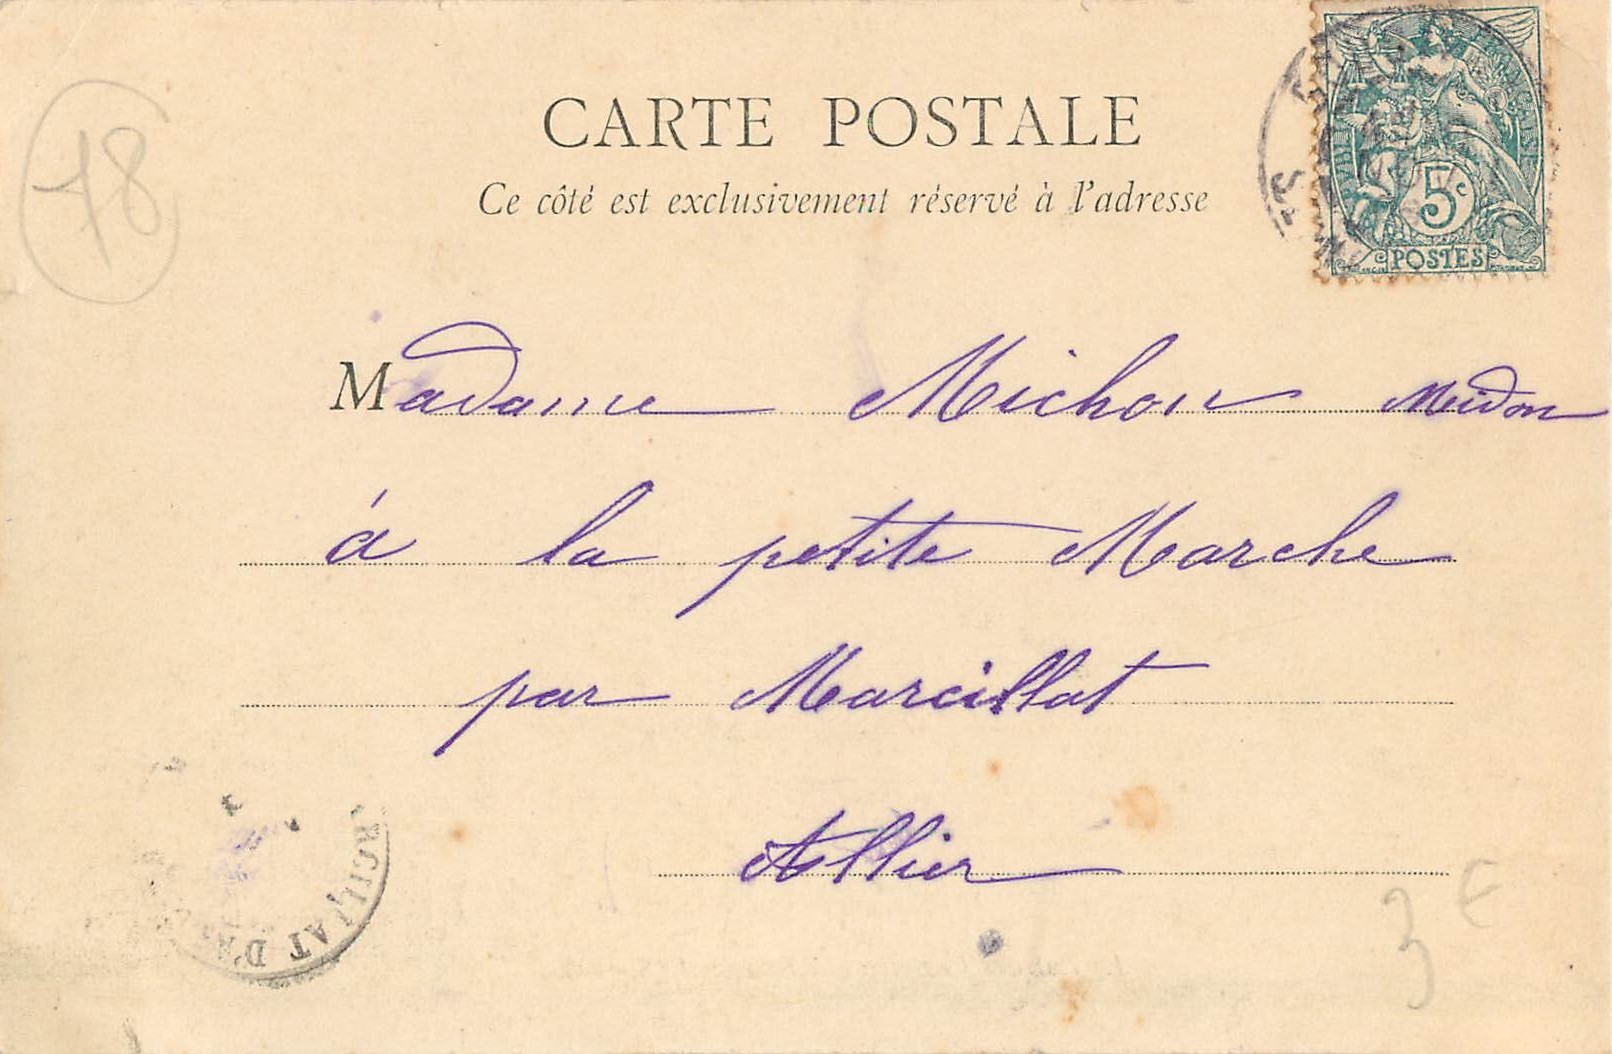 18
CARTE POSTALE
Ce côté est exclusivement réservé à l'adresse
5c
POSTES
Madame Michon Midon
à la petite Marche
par Marcillat
Allier
RCILLAT D'A
3 €